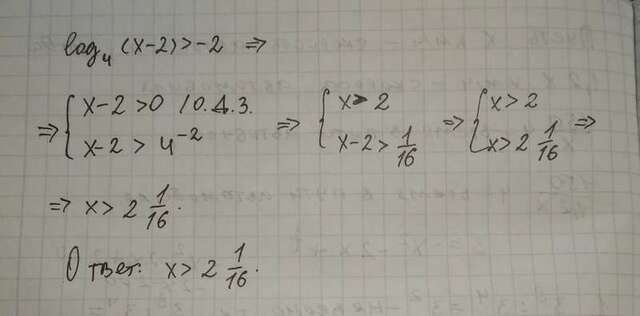 log₄(x-2)>-2 ⇒
⇒ { x-2>0 /О.Д.З. ⇒ { x>2 ⇒ { x>2
x-2>4⁻² x-2>1/16 x>2 1/16 ⇒
⇒ x>2 1/16.
Ответ: x>2 1/16.